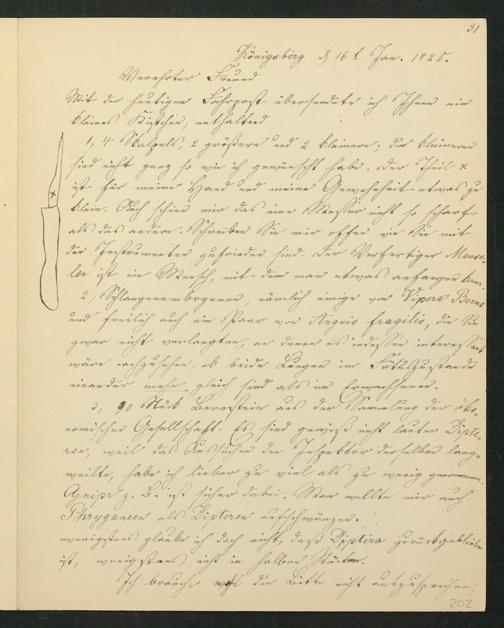 91
Königsberg d 16t Jan. 1825.
Verehrter Freund
Mit der heutigen Fahrpost übersende ich Ihnen ein
kleines Kistchen, enthaltend
1, 4 Skalpels, 2 größere und 2 kleinere, die kleineren
sind nicht ganz so wie ich gewünscht habe. Der Theil x
ist für meine Hand und meine Gewohnheit etwas zu
klein. Auch schien mir das eine Messer nicht so scharf
als das andere. Schreiben Sie mir offen wie Sie mit
den Instrumenten zufrieden sind. Der Verfertiger
ist ein Mensch, mit dem man etwas anfangen kann.
2, Schlangenembryonen, nämlich einige von Vipera Berus
und freilich auch ein Paar von Anguis fragilis, die Sie
zwar nicht verlangten, an denen es indessen interessant
wäre nachzusehen, ob beide Lungen im Fötuszustande
einander mehr gleich sind als im Erwachsenen.
3, 90 Stück Bernstein aus der Sammlung der öko-
nomischen Gesellschaft. Es sind gewiß nicht lauter Dipte-
ren, weil das Aussuchen den Inspektor derselben lang-
weilte, habe ich lieber zu viel als zu wenig genommen.
z. B. ist sicher dabei. Man wollte mir auch
Phryganeen als Dipteren
wenigstens glaube ich doch nicht, daß Diptera zurückgeblieben
ist, wenigstens nicht in halben Stücken.
Ich brauche wohl die Bitte nicht auszusprechen,
202